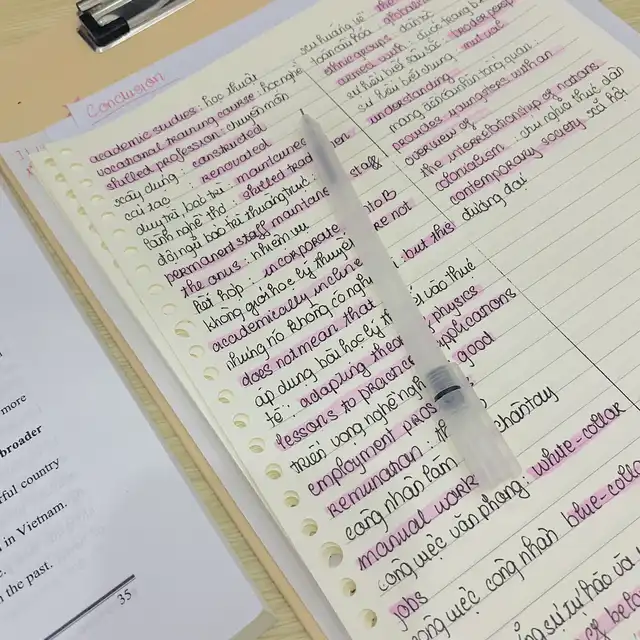 Conclusion
academic studies : học thuật
vocational training course : học nghề
skilled profession : chuyên môn
xây dựng : constructed
cải tạo : renovated
duy trì, bảo trì : maintained
lành nghề thợ : skilled
đội ngũ bảo trì thường trực : staff
permanent staff
the onus : nhiệm vụ
kết hợp : incorporate into B
không giỏi học lý thuyết : are not
academically
nhưng nó không có nghĩa : but this
does not mean that
áp dụng bài học lý thuyết vào thực
tế : adapting physics
lessons to applications
triển vọng nghề nghiệp good
employment
remuneration :
công nhân làm chân tay
manual work
công việc văn phòng : white-collar
jobs
công việc công nhân blue-colla
sự tự hào
xu hướng về
toàn cầu hóa
ethnic groups : dân tộc
armed with : được trang bị
sự hiểu biết sâu sắc
sự hiểu biết chung : mutual
understanding
mang đến cái nhìn tổng quan
provides youngsters with an
overview of
the interrelationship of nations
colonialism : chủ nghĩa thực dân
contemporary society : xã hội
đương đại
more
broader
rful country
in Vietnam.
n the past.
35